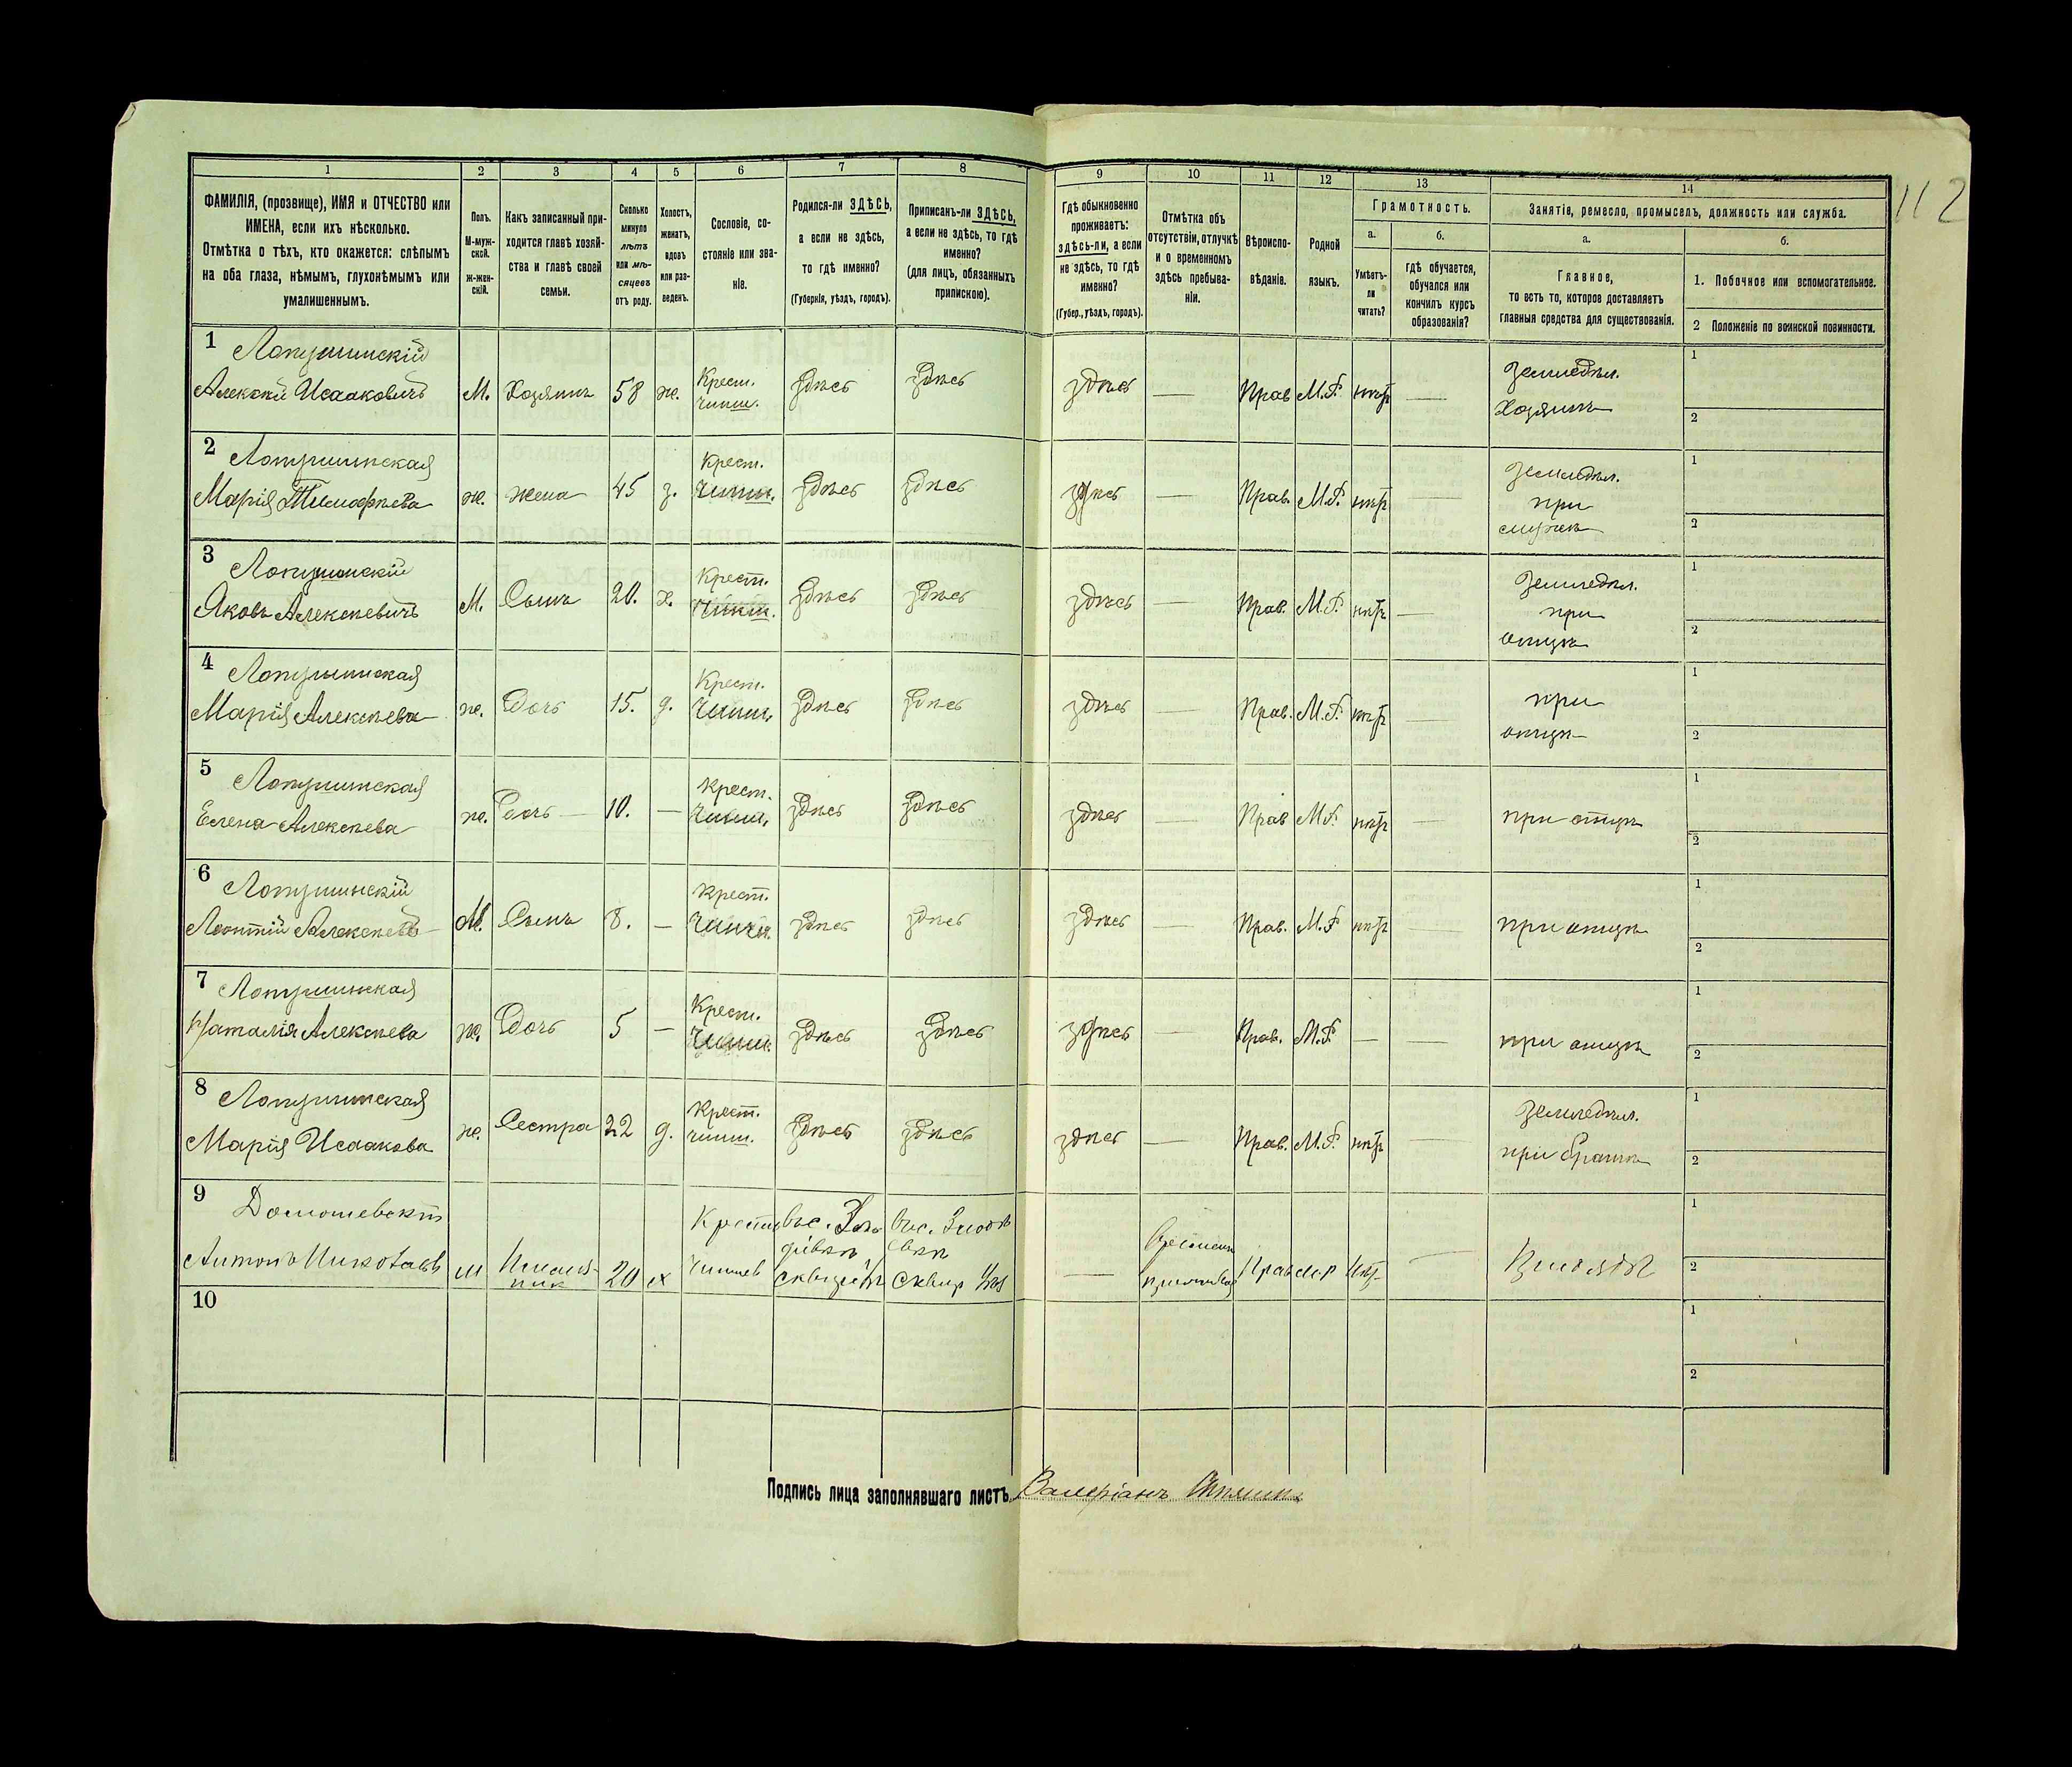 112
1 2 3 4 5 6 7 8 9 10 11 12 13 14
ФАМИЛІЯ, (прозвище), ИМЯ и ОТЧЕСТВО или
ИМЕНА, если ихъ нѣсколько.
Отмѣтка о тѣхъ, кто окажется: слѣпымъ
на оба глаза, нѣмымъ, глухонѣмымъ или
умалишеннымъ.
Полъ.
М-муж-
ской.
ж-жен-
скій.
Какъ записанный при-
ходится главѣ хозяй-
ства и главѣ своей
семьи.
Сколько
минуло
лѣтъ
или мѣ-
сяцевъ
отъ роду.
Холостъ,
женатъ,
вдовъ
или раз-
веденъ.
Сословіе, со-
стояніе или зва-
ніе.
Родился-ли ЗДѢСЬ,
а если не здѣсь,
то гдѣ именно?
(Губернія, уѣздъ, городъ).
Приписанъ-ли ЗДѢСЬ,
а если не здѣсь, то гдѣ
именно?
(для лицъ, обязанныхъ
припискою).
Гдѣ обыкновенно
проживаетъ:
здѣсь-ли, а если
не здѣсь, то гдѣ
именно?
(Губер., уѣздъ, городъ).
Отмѣтка объ
отсутствіи, отлучкѣ
и о временномъ
здѣсь пребыва-
ніи.
Вѣроиспо-
вѣданіе.
Родной
языкъ.
Грамотность.
а.
Умѣетъ-
ли
читать?
б.
гдѣ обучается,
обучался или
кончилъ курсъ
образованія?
Занятіе, ремесло, промыселъ, должность или служба.
а.
Главное,
то есть то, которое доставляетъ
главныя средства для существованія.
б.
1. Побочное или вспомогательное.
2 Положеніе по воинской повинности.
1 Лопушинскій
Алексѣй Исааковичъ М. Хозяинъ 58 ж. Крест. чинш. Здѣсь Здѣсь здѣсь — Прав М.Р. нѣтъ — Земледѣл. Хозяинъ 1 2
2 Лопушинская
Марія Тимофѣева ж. жена 45 з. Крест. чинш. Здѣсь Здѣсь здѣсь — Прав. М.Р. нѣтъ — Земледѣл. при мужѣ 1 2
3 Лопушинскій
Яковъ Алексѣевичъ М. Сынъ 20. х. Крест. чинш. Здѣсь Здѣсь здѣсь — Прав. М.Р. нѣтъ — Земледѣл. при отцѣ 1 2
4 Лопушинская
Марія Алексѣева ж. Дочь 15. д. Крест. чинш. Здѣсь Здѣсь здѣсь — Прав. М.Р. нѣтъ — при отцѣ 1 2
5 Лопушинская
Елена Алексѣева ж. Дочь 10. — Крест. чинш. Здѣсь Здѣсь здѣсь — Прав М.Р. нѣтъ — при отцѣ 1 2
6 Лопушинскій
Леонтій Алексѣевъ М. Сынъ 8. — Крест. чинш. Здѣсь Здѣсь здѣсь — Прав. М.Р нѣтъ — при отцѣ 1 2
7 Лопушинская
Наталія Алексѣева ж. Дочь 5 — Крест. чинш. Здѣсь Здѣсь здѣсь — Прав. М.Р. — — при отцѣ 1 2
8 Лопушинская
Марія Исаакова ж. Сестра 22 д. Крест. чинш. Здѣсь здѣсь здѣсь — Прав. М.Р. нѣтъ — Земледѣл. при братѣ 1 2
9
Антонъ м 20 х — Прав м.р нѣт — 1 2
10 1 2
Подпись лица заполнявшаго листъ Валеріанъ